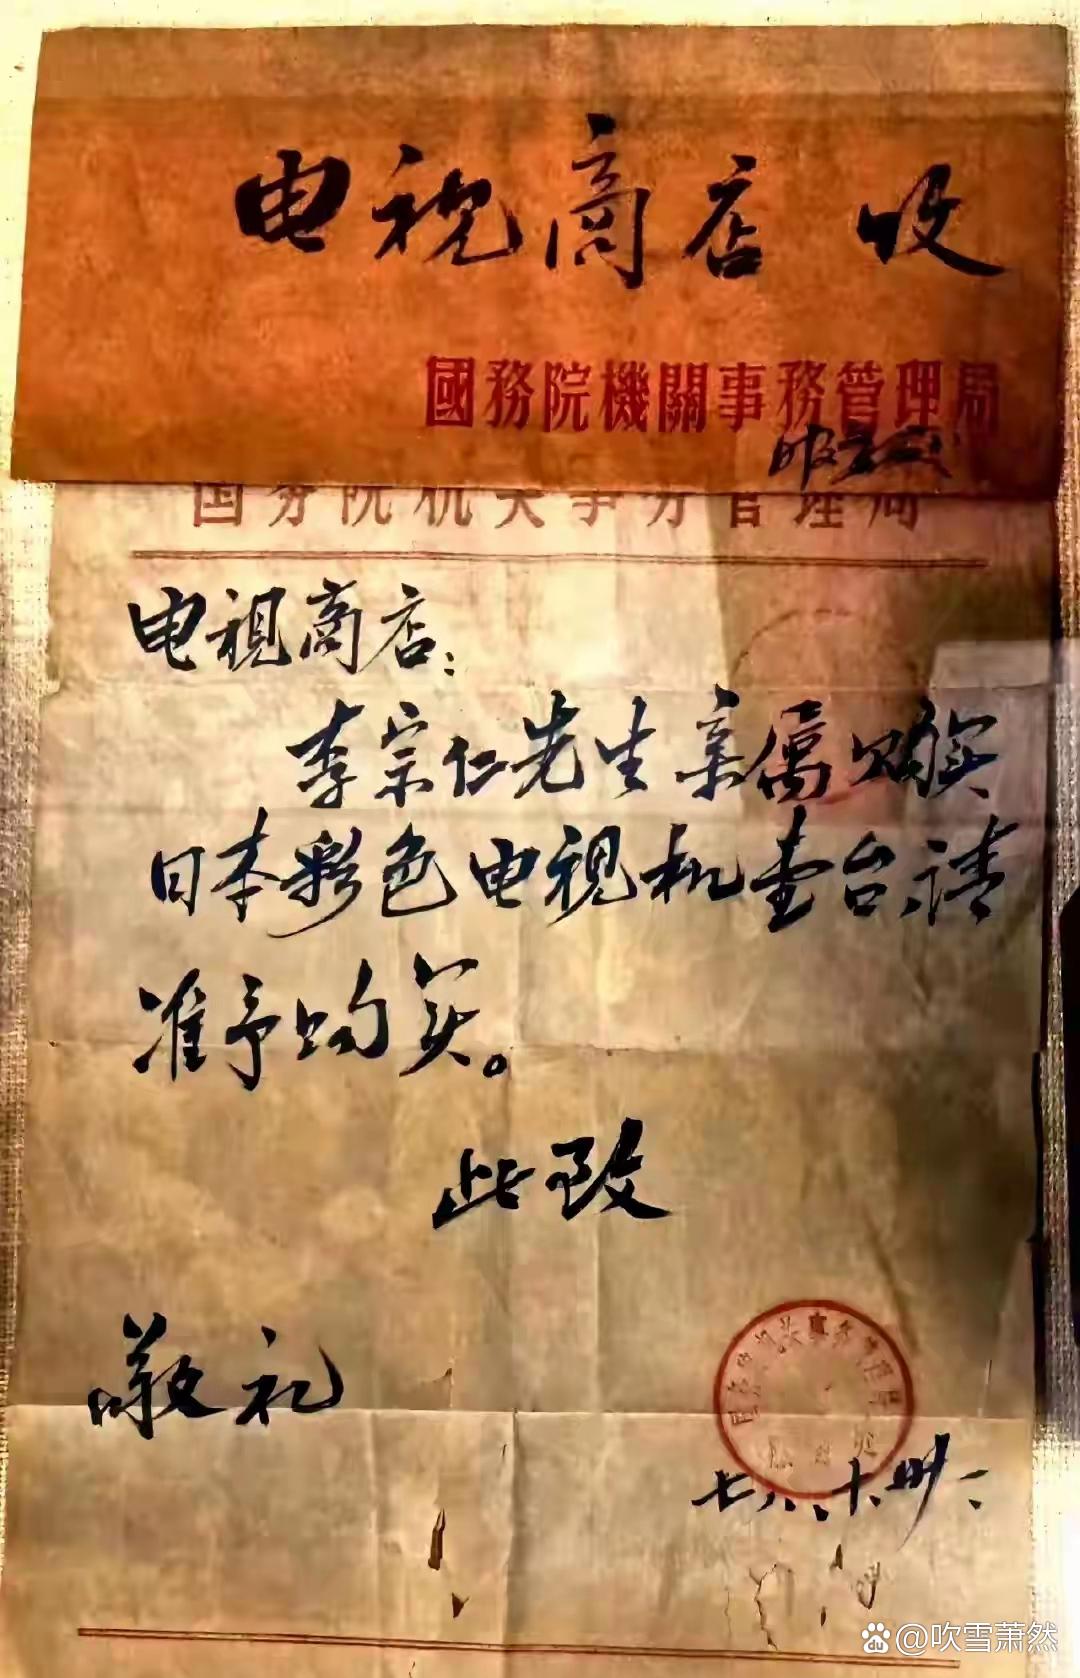 电视商店 收
國務院機關事務管理局
国务院机关事务管理局
电视商店：
李宗仁先生亲属购买
日本彩色电视机壹台，请
准予购买。
此致
敬礼
国务院机关事务管理局
@吹雪萧然